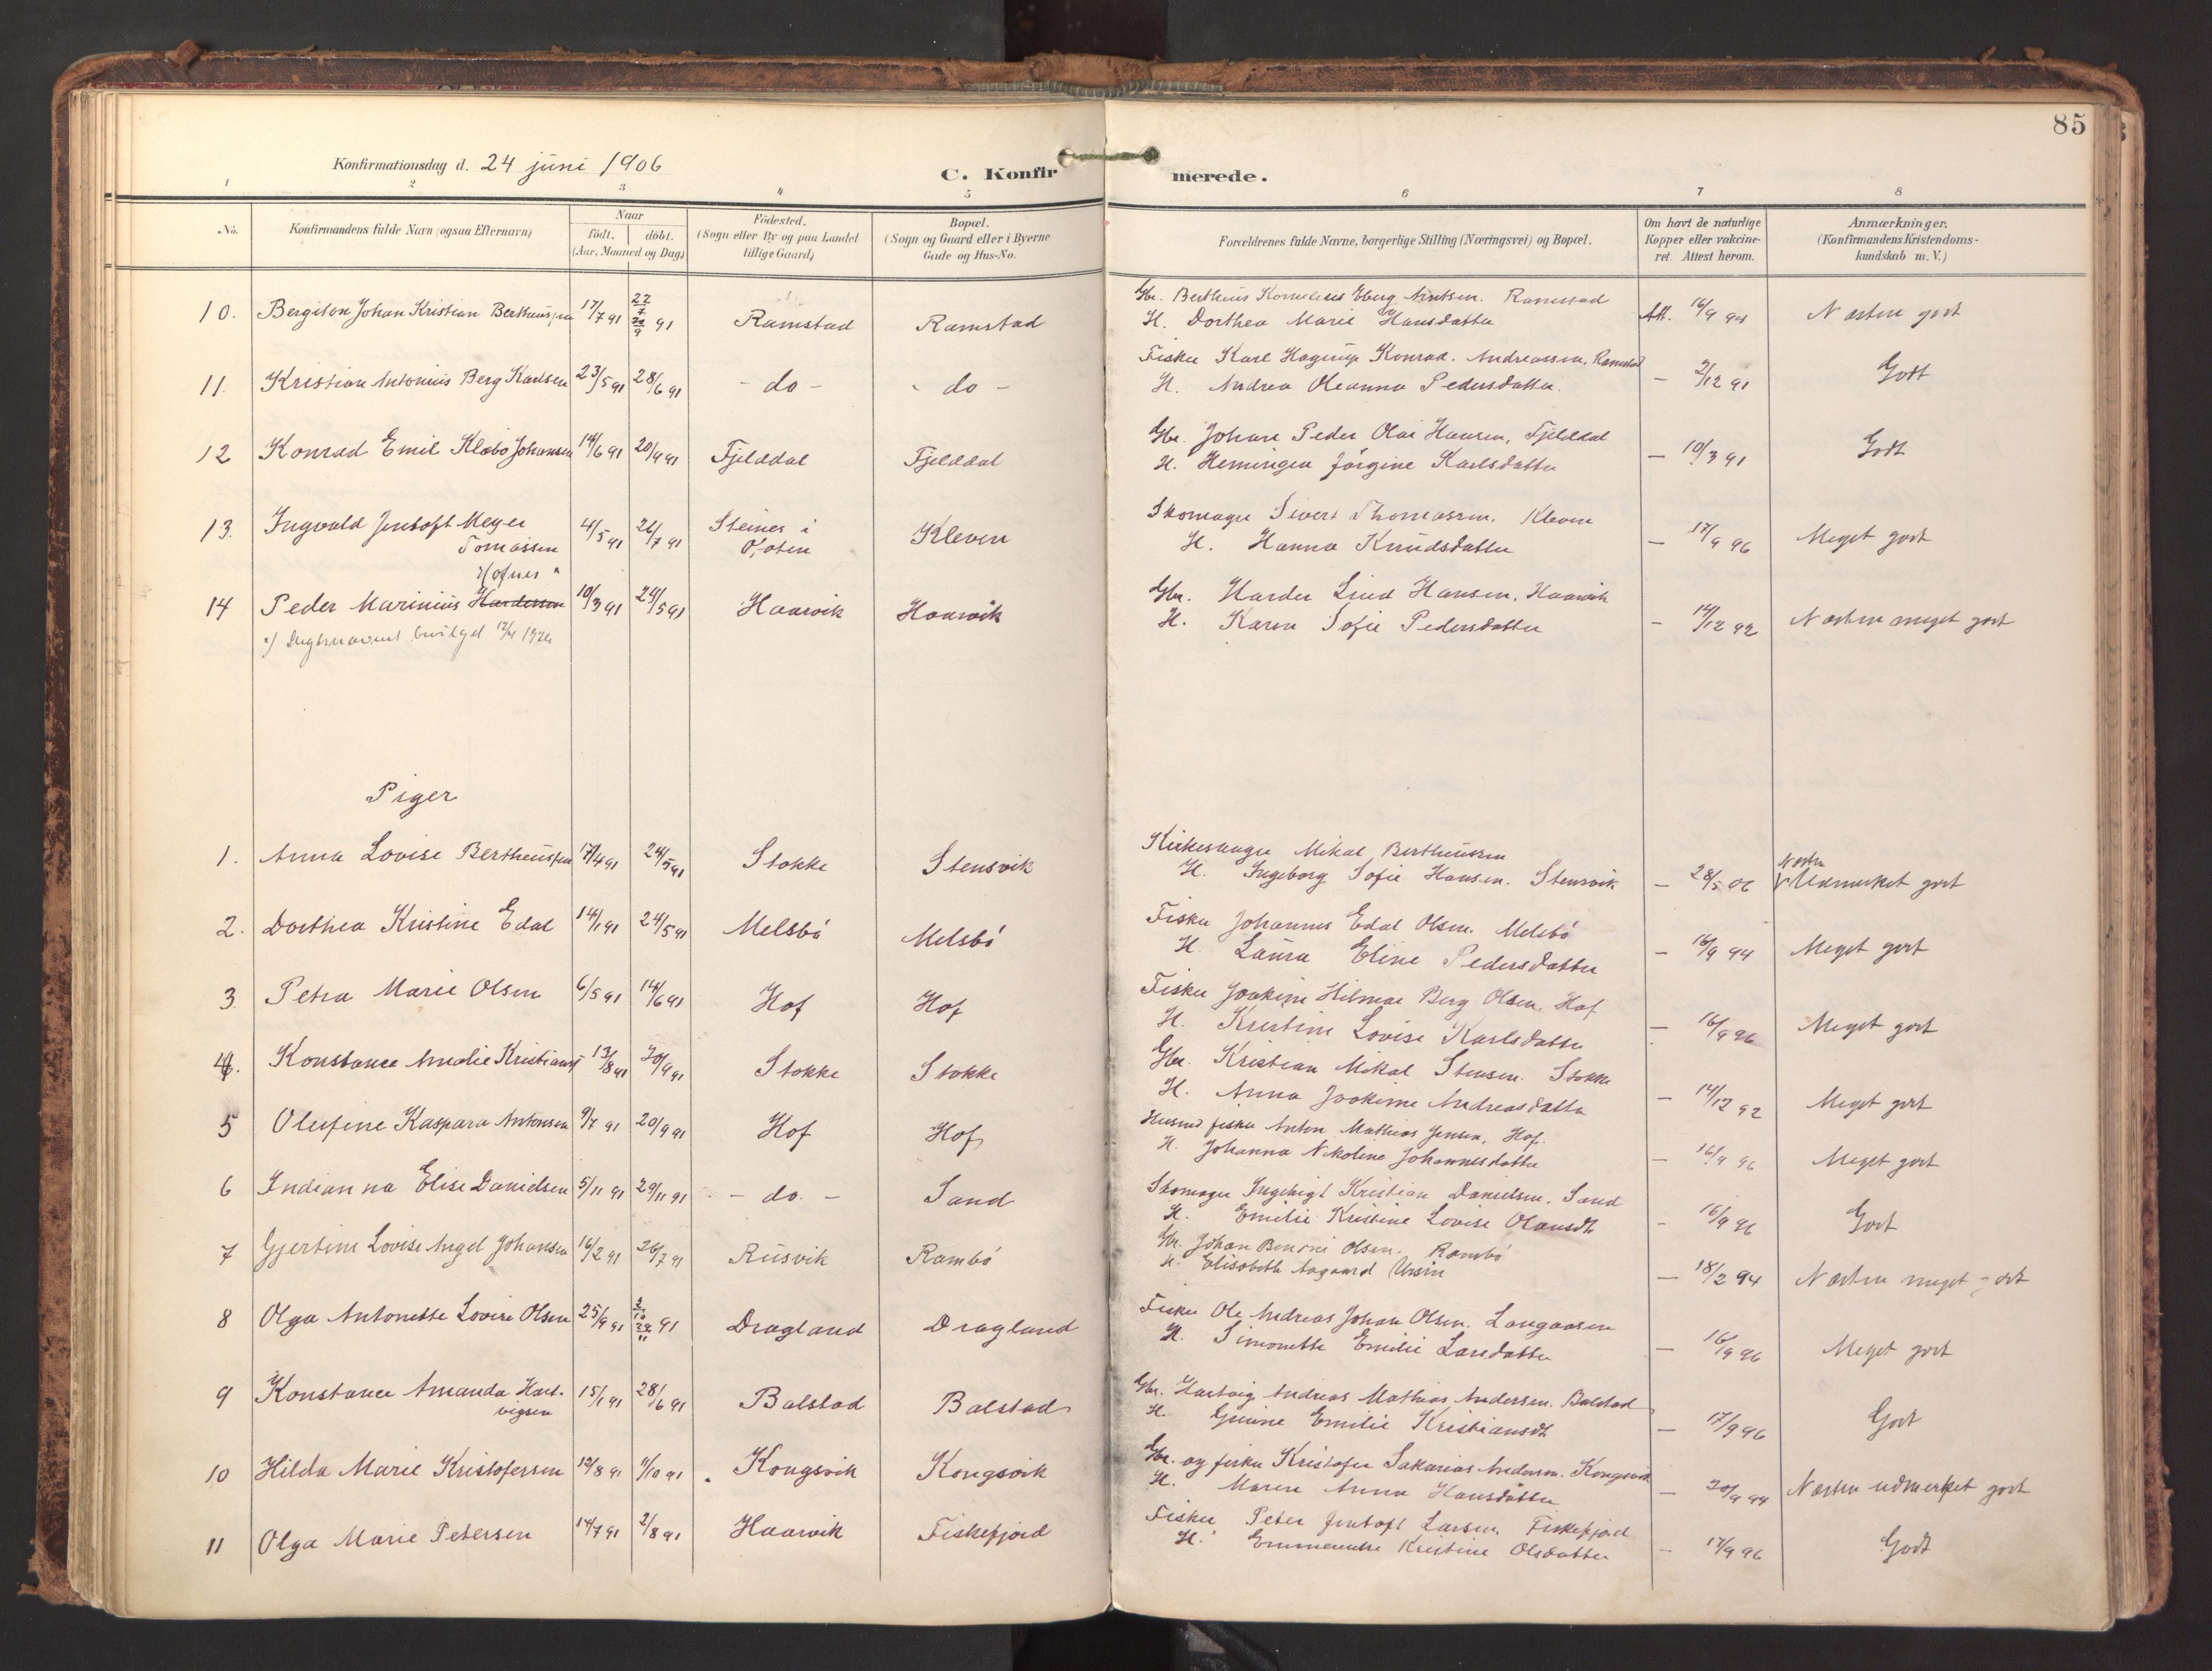 85
Konfirmationsdag d. 24 juni 1906
C. Konfirmerede.
1 2 3 4 5 6 7 8
No. Konfirmandens fulde Navn (ogsaa Efternavn) Naar født. døbt. (Aar, Maaned og Dag) Fødested. (Sogn eller By og paa Landet tillige Gaard) Bopæl. (Sogn og Gaard eller i Byerne Gade og Hus-No. Forældrenes fulde Navne, borgerlige Stilling (Næringsvei) og Bopæl. Om havt de naturlige Kopper eller vakcineret. Attest herom. Anmærkninger. (Konfirmandens Kristendomskundskab m. V.)
10. Bergiton Johan Kristian Bertheussen 17/7 91 22/7 20/9 91 Ramstad Ramstad Gbr. Bertheus Kornelius Berg Arntsen. Ramstad
H. Dorthea Marie Hansdatter Att. 16/9 94 Næsten godt
11. Kristian Antonius Berg Karlsen 23/5 91 28/6 91 - do - - do - Fisker Karl Hagerup Konrad. Andreassen, Ramstad
H. Andrea Oleanna Pedersdatter. - 2/12 91 Godt
12 Konrad Emil Klæbo Johansen 14/6 91 20/9 91 Fjelddal Fjelddal Gbr. Johan Peder Olai Hansen, Fjelddal
H. Hemingea Jørgine Karlsdatter - 10/3 91 Godt
13. Ingvald Jentoft Meyer Tomassen 4/5 91 26/7 91 Steines i Kleven Skomager Sivert Thomassen. Kleven
H. Hanna Knudsdatter - 17/9 96 Meget godt
Hofner *
14 Peder Marinius Hardersen 10/3 91 24/5 91 Haarvik Haarvik Gbr. Harder Lind Hansen, Haarvik
H. Karen Sofie Pedersdatter - 14/12 92 Næsten meget godt
Piger
1. Anna Lovise Bertheussen 17/4 91 24/5 91 Stokke Stensvik Kirkesanger Mikal Bertheussen
H. Ingeborg Sofie Hansen. Stensvik - 28/5 06 Næsten Udmerket godt
2. Dorthea Kristine Edal 14/1 91 24/5 91 Melsbø Melsbø Fisker Johannes Edal Olsen. Melsbø
H. Laura Eline Pedersdatter - 16/9 94 Meget godt
3. Petra Marie Olsen 6/5 91 14/6 91 Hof Hof Fisker Joakim Hilmar Berg Olsen, Hof
H. Kristine Lovise Karlsdatter - 16/9 96 Meget godt
4. Konstance Amalie Kristians 13/8 91 20/9 91 Stokke Stokke Gbr. Kristian Mikal Stensen. Stokke
H. Anna Joakime Andreasdatter - 14/12 92 Meget godt
5 Olufine Kaspara Antonsen 9/7 91 20/9 91 Hof Hof Husmd fisker Anton Mathias Jensen, Hof.
H. Johanna Nikoline Johannesdatter - 16/9 96 Meget godt
6 Indianna Elise Danielsen 5/11 91 29/11 91 - do. - Sand Skomager Ingebrigt Kristian Danielsen. Sand
H. Emilie Kristine Lovise Olausdt - 16/9 96 Godt
7 Gjertine Lovise Angel Johansen 16/2 91 26/7 91 Rusvik Rambø Gbr. Johan Benoni Olsen. Rambø
H. Elisabeth Aagaard Ursin - 18/2 94 Næsten meget godt
8 Olga Antonette Lovise Olsen 25/9 91 22/11 91 Dragland Dragland Fisker Ole Andreas Johan Olsen. Langaasen
H. Simonette Emilie Larsdatter - 16/9 96 Meget godt
9 Konstance Amanda Hartvigsen 15/1 91 28/6 91 Balstad Balstad Gbr. Hartvig Andreas Mathias Andersen. Balstad
H. Emilie Kristiansdt - 17/9 96 Godt
10 Hilda Marie Kristofersen 12/8 91 11/10 91 Kongsvik Kongsvik Gbr. og fisker Kristofer Sakarias Andersen. Kongsvik
H. Maren Anna Hansdatter - 20/9 94 Næsten udmerket godt
11 Olga Marie Petersen 14/7 91 2/8 91 Haarvik Fiskefjord Fisker Peter Jentoft Larsen, Fiskefjord
H. Emmerentse Kristine Olsdatter - 17/9 96 Godt